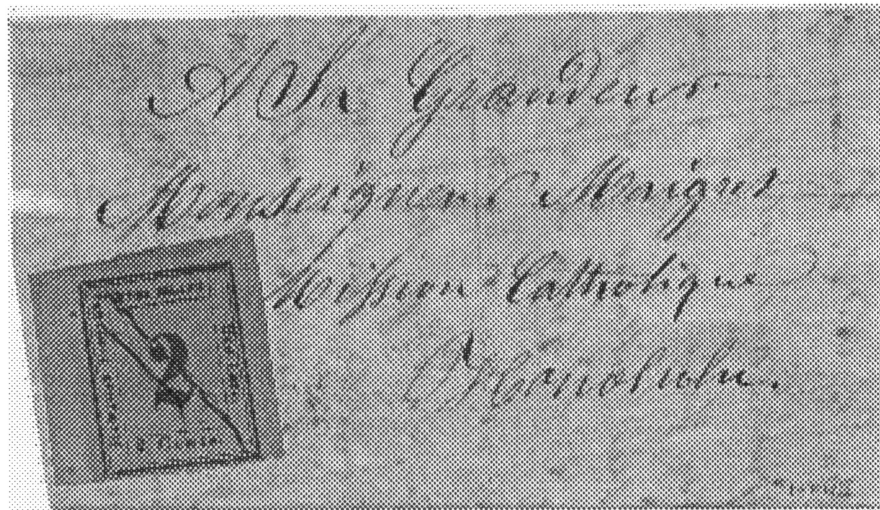 A Sa Grandeur
Monseigneur Maigret
Mission Catholique
Honolulu.
2
2 Cents.